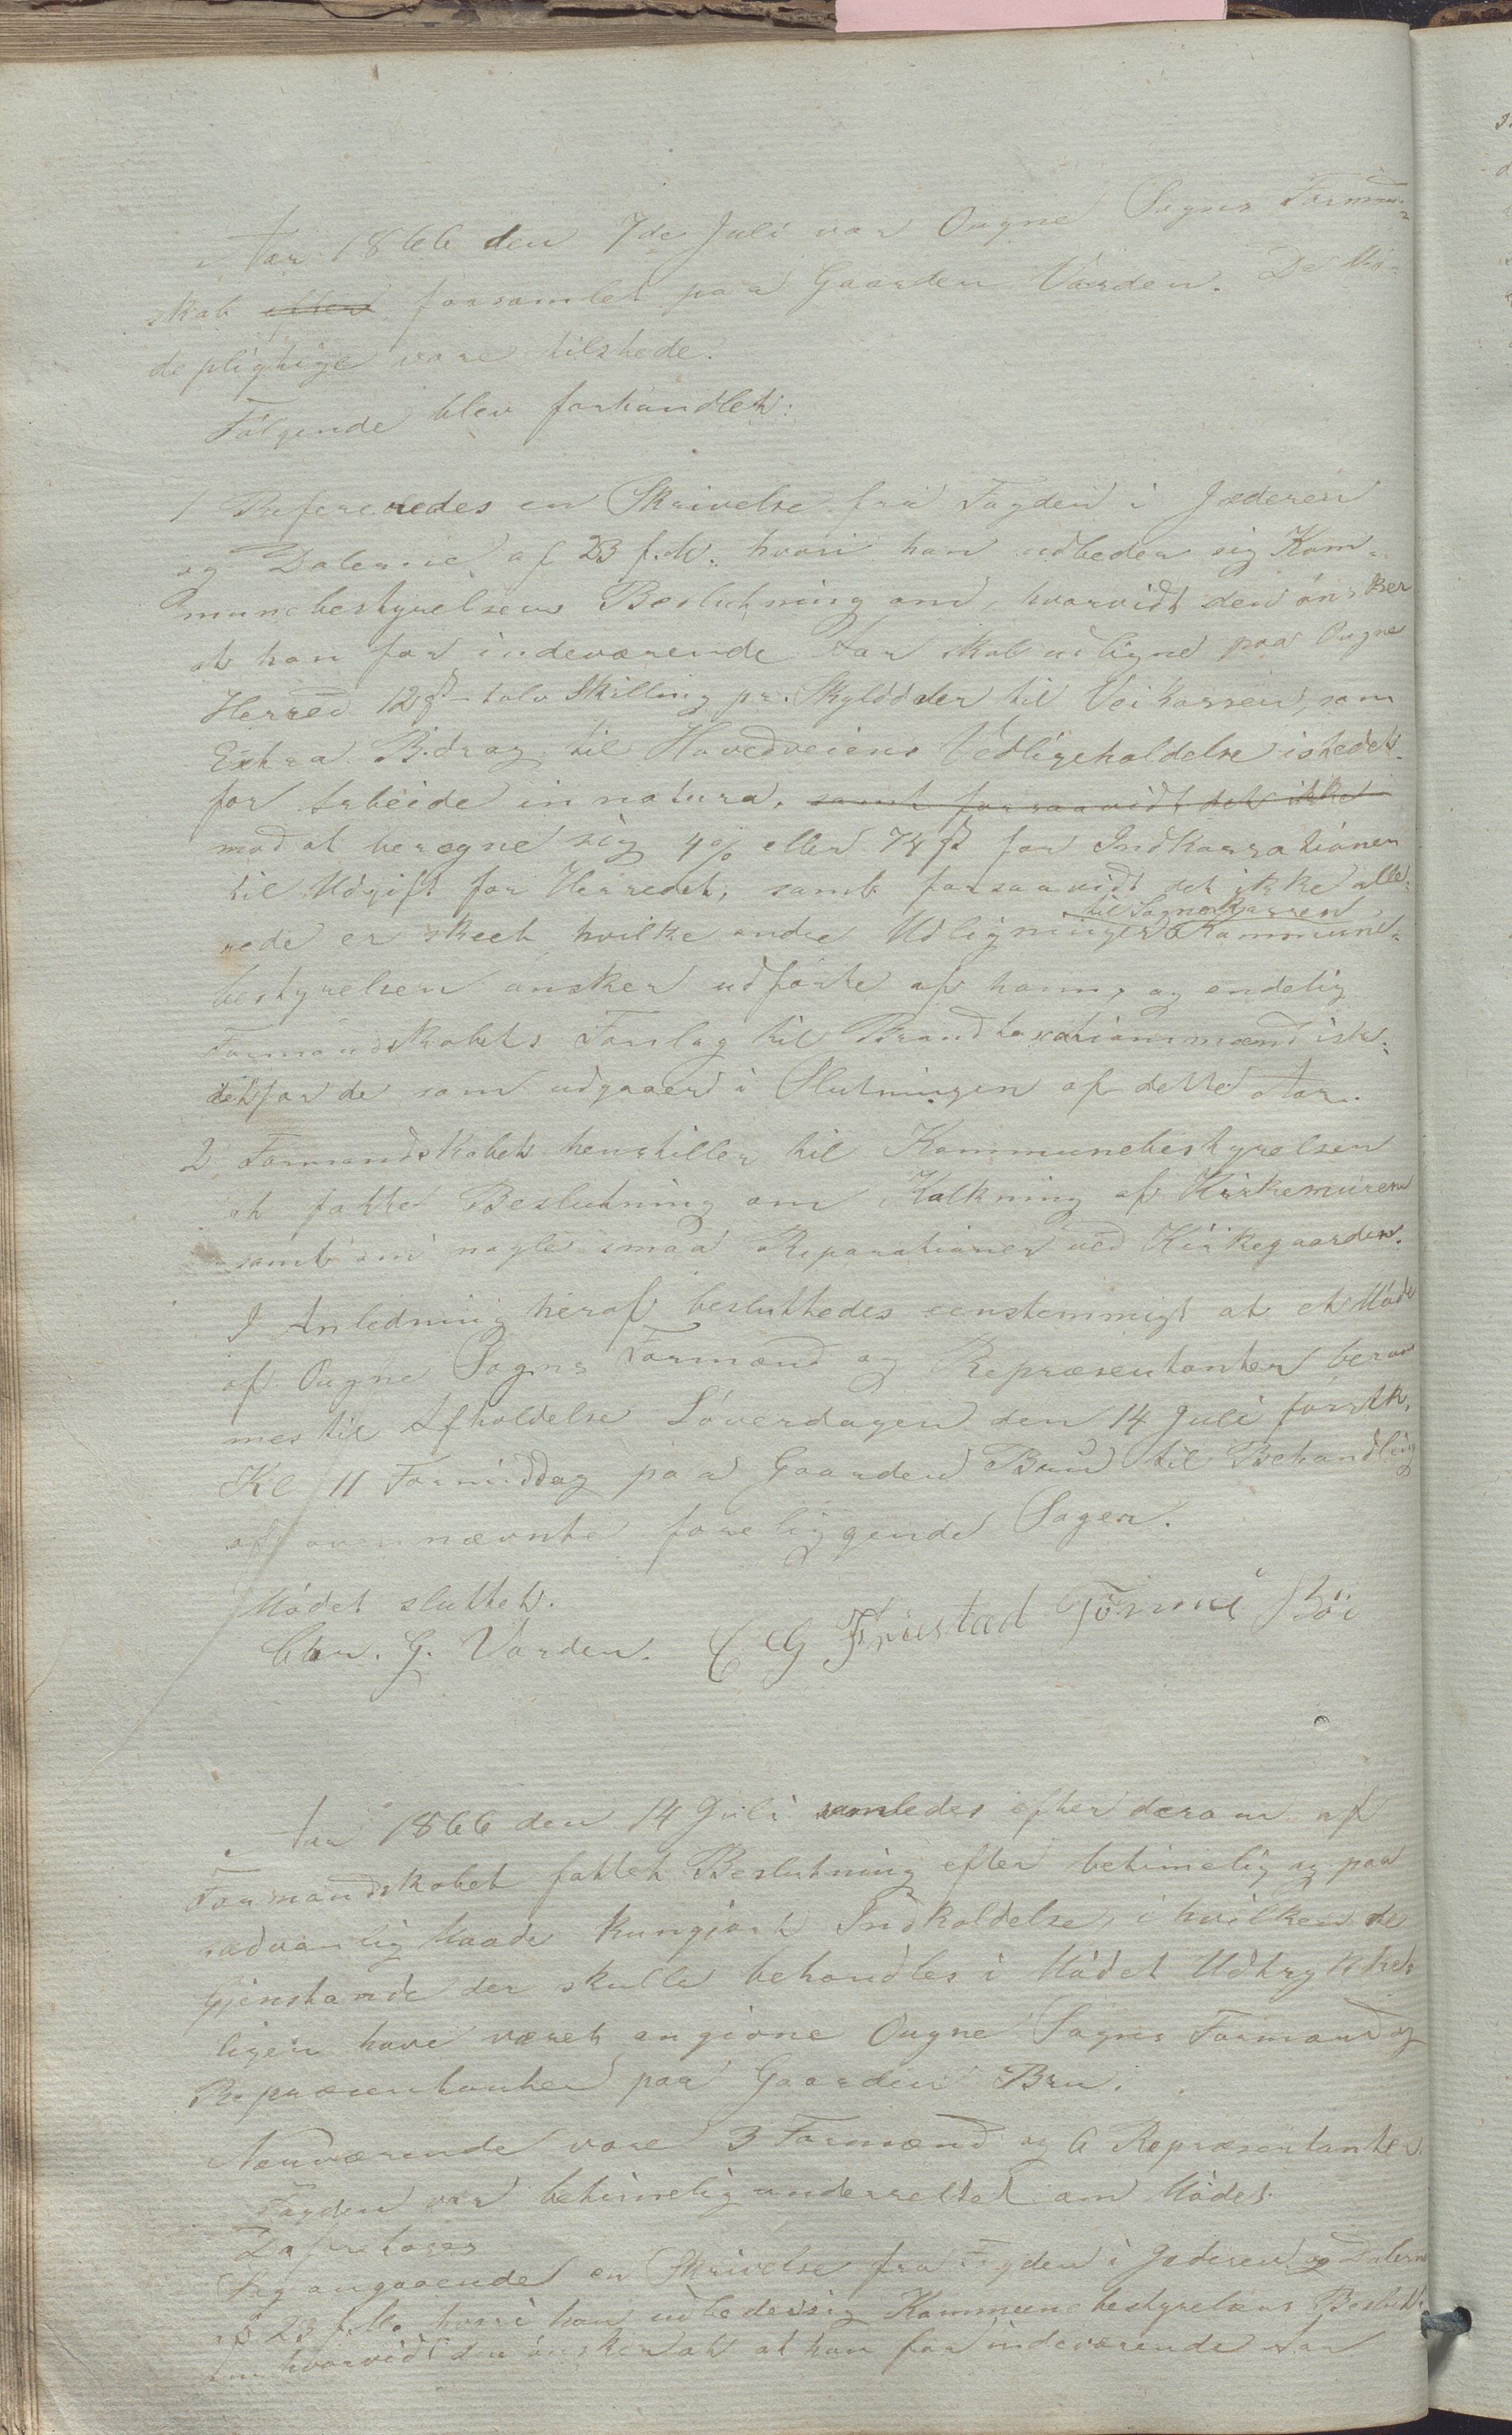 Aar 1866 den 7de Juli var Ougne Sogns Formen-
skab efter forsamlet paa Gaarden Varden. De Mö-
depligtige vare tilstede.
Følgende blev forhandlet:
1 Refereredes en Skrivelse fra Fogden i Jæderen
og Dalerne af 23 f. M. hvori han udbeder sig Kom-
munebestyrelsens Beslutning om, hvorvidt den önsker
at han for indeværende Aar skal udligne paa Ougne
Herred 12 ß - tolv Skilling pr. Skylddaler til Veikassen, som
Extra Bidrag til Hovedveiens Vedligeholdelse istedet-
for Arbeide in natura. samt forsaavidt det ikke
mod at beregne sig 4 % eller 74 ß for Indkassationen
til Udgift for Herredet, samt forsaavidt det ikke alle-
til Sognekassen
rede er skeet hvilke andre Udligninger Kommune-
bestyrelsen önsker udförte af ham, og endelig
Formandskabets Forslag til Brandtaxationsmænd iste-
detfor de som udgaaer i Slutningen af dette Aar.
2 Formandskabet henstiller til Kommunebestyrelsen
at fatte Beslutning om Kalkning af Kirkemuren
samt om nogle smaa Reparationer ved Kirkegaarden.
I Anledning heraf besluttedes eenstemmigt at et Möde
af Ougne Sogns Formænd og Repræsentanter beram
mes til Afholdelse Löverdagen den 14 Juli förstk.
Kl 11 Formiddag paa Gaarden Bru til Behandling
af ovennævnte foreliggende Sager.
Mödet sluttet.
Chr. G. Varden. C G Fristad Törres Böe
Aar 1866 den 14 Juli samledes efter derom af
Formandskabet fattet Beslutning efter betimelig og paa
sædvanlig Maade kungjort Indkaldelse, i hvilken de
Gjenstande der skulle behandles i Mödet Udtrykke-
ligen have været angivne Ougne Sogns Formænd og
Repræsentanter paa Gaarden Bru.
Nærværende vare 3 Formænd og 6 Repræsentanter.
Fogden var betimelig underrettet om Mödet.
Da foretoges
Sag angaaende en Skrivelse fra Fogden i Jæderen og Dalerne
af 23 f. M. hvori han udbeder sig Kommunebestyrelsens Beslut-
om hvorvidt den önsker at at han for indeværende Aar